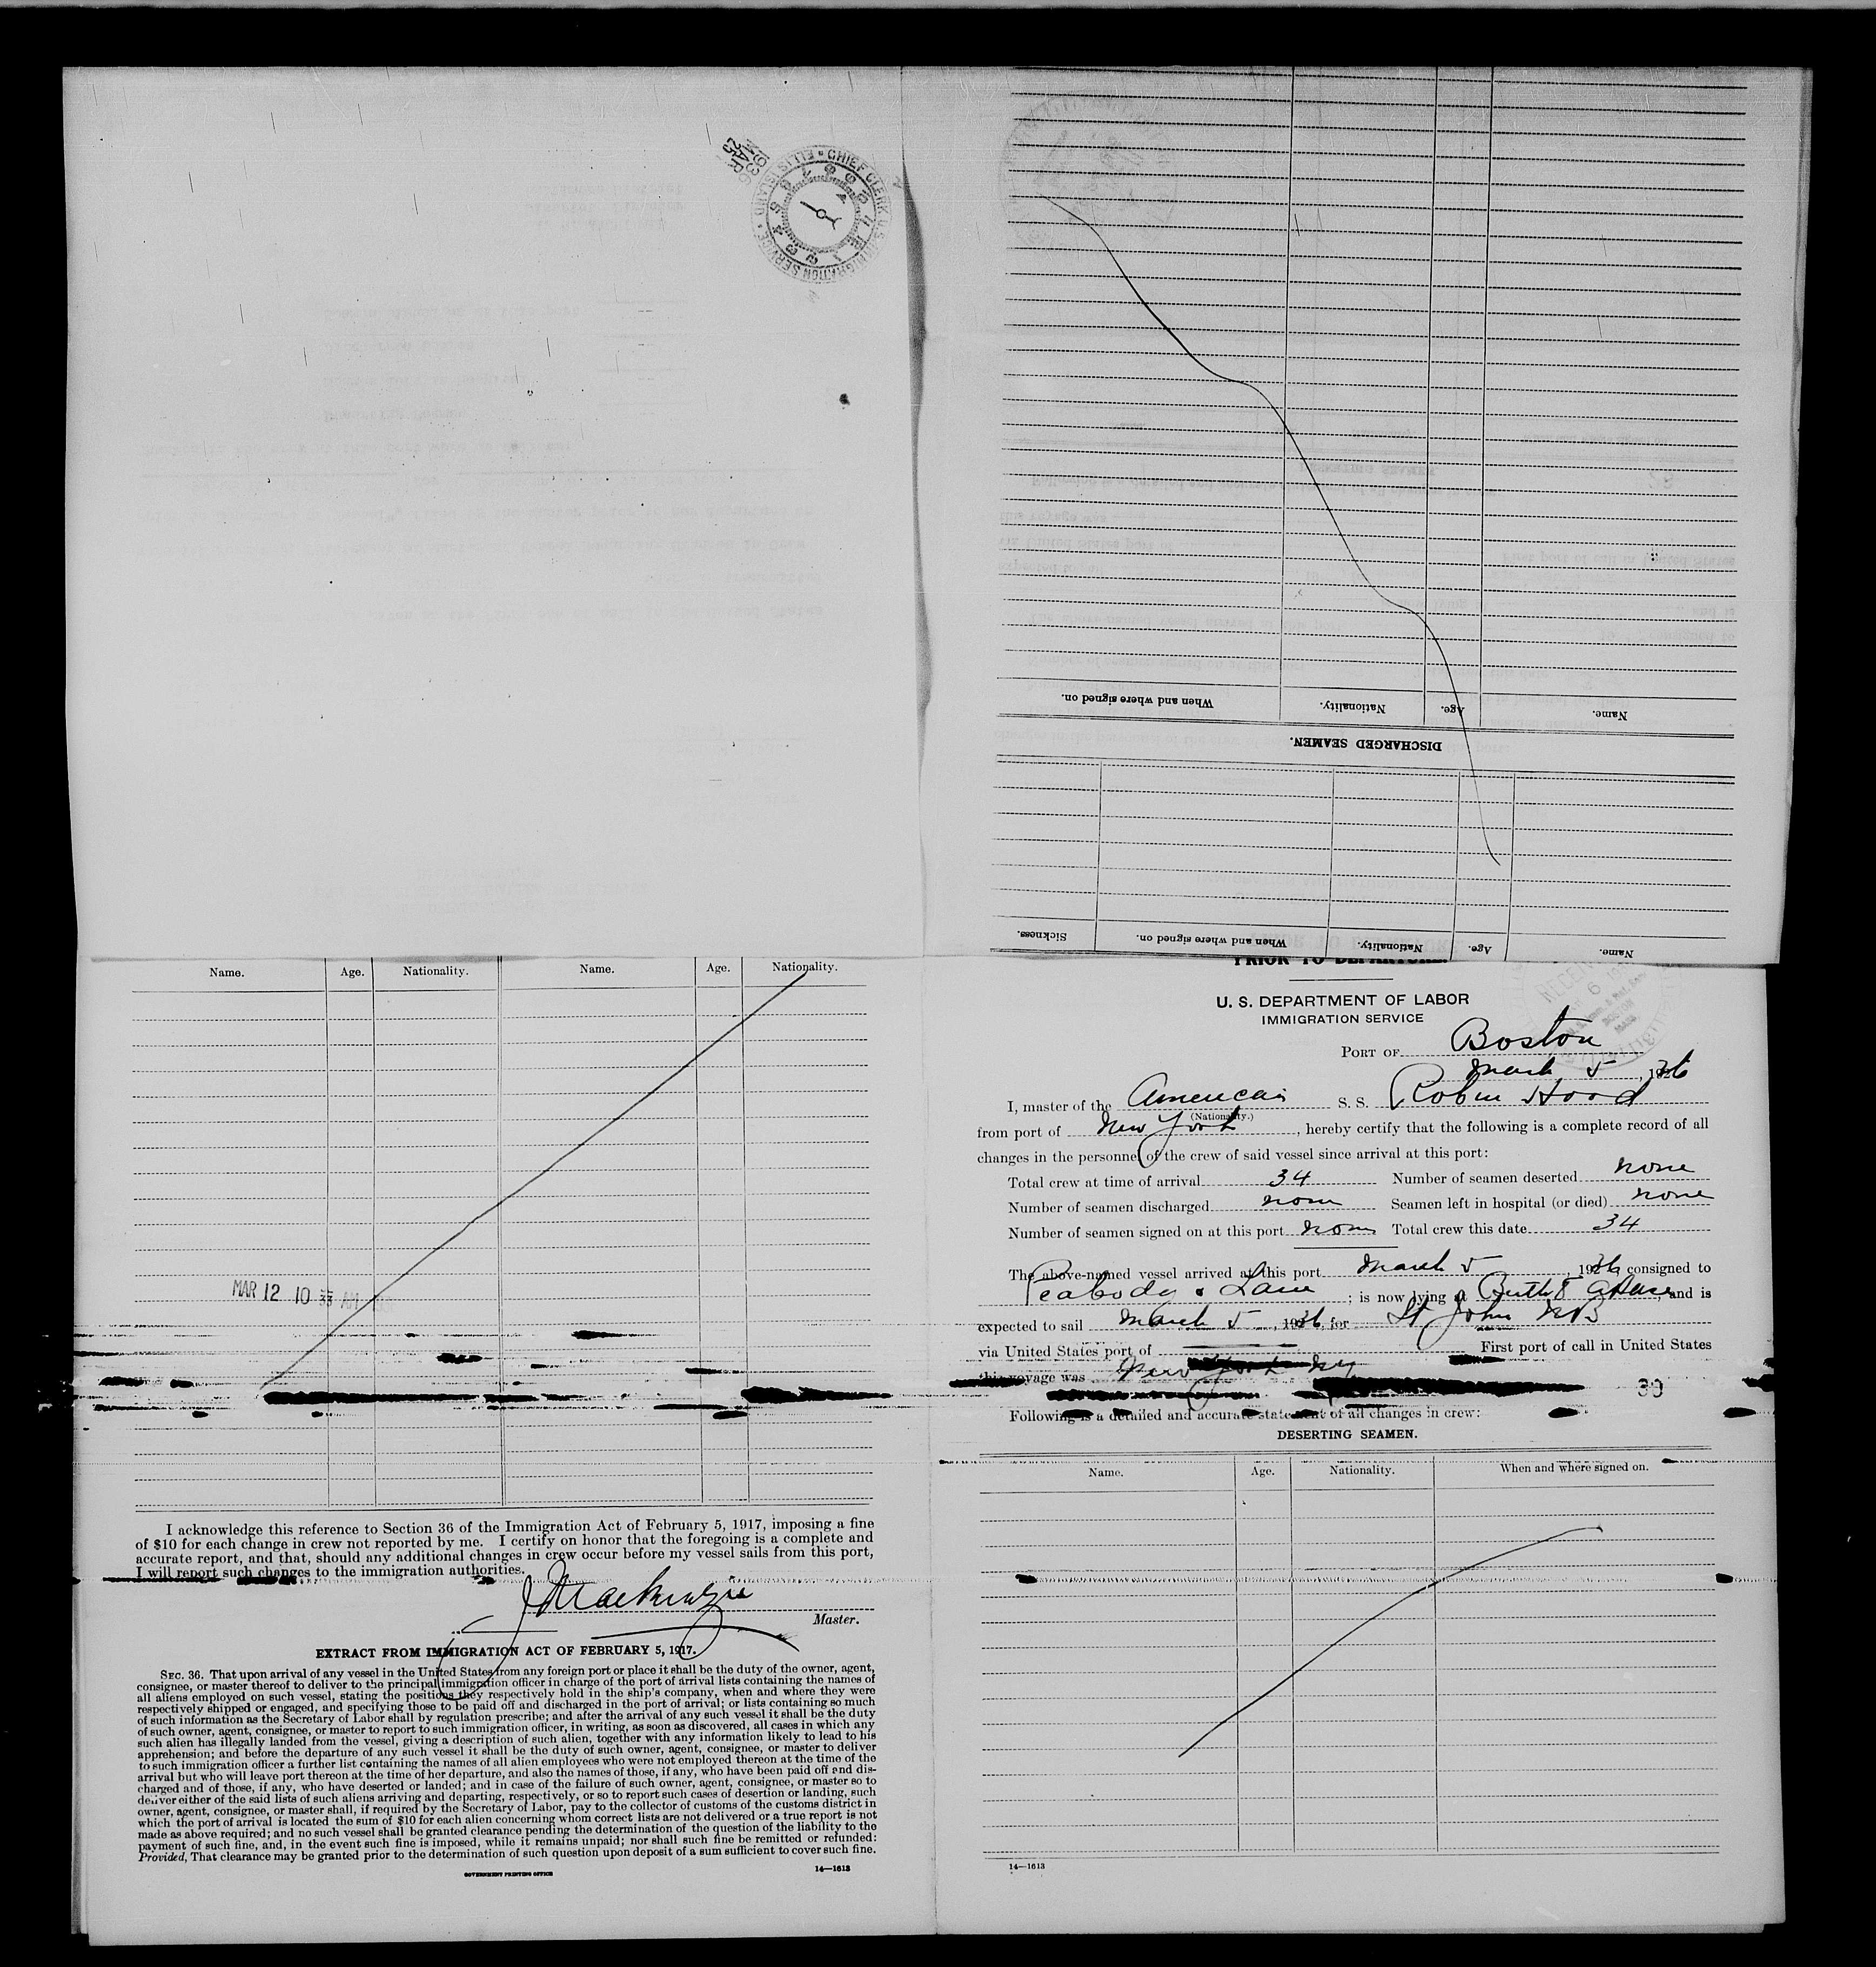 CHIEF CLERK U.S. IMMIGRATION SERVICE • ELLIS ISLAND •
1936
MAR
25
Name. Age. Nationality. When and where signed on.
DISCHARGED SEAMEN.
Name. Age. Nationality. When and where signed on. Sickness.
Name. Age. Nationality. Name. Age. Nationality.
MAR 12 10 33 AM
I acknowledge this reference to Section 36 of the Immigration Act of February 5, 1917, imposing a fine
of $10 for each change in crew not reported by me. I certify on honor that the foregoing is a complete and
accurate report, and that, should any additional changes in crew occur before my vessel sails from this port,
I will report such changes to the immigration authorities.
J Mackenzie
Master.
EXTRACT FROM IMMIGRATION ACT OF FEBRUARY 5, 1917.
SEC. 36. That upon arrival of any vessel in the United States from any foreign port or place it shall be the duty of the owner, agent,
consignee, or master thereof to deliver to the principal immigration officer in charge of the port of arrival lists containing the names of
all aliens employed on such vessel, stating the positions they respectively hold in the ship's company, when and where they were
respectively shipped or engaged, and specifying those to be paid off and discharged in the port of arrival; or lists containing so much
of such information as the Secretary of Labor shall by regulation prescribe; and after the arrival of any such vessel it shall be the duty
of such owner, agent, consignee, or master to report to such immigration officer, in writing, as soon as discovered, all cases in which any
such alien has illegally landed from the vessel, giving a description of such alien, together with any information likely to lead to his
apprehension; and before the departure of any such vessel it shall be the duty of such owner, agent, consignee, or master to deliver
to such immigration officer a further list containing the names of all alien employees who were not employed thereon at the time of the
arrival but who will leave port thereon at the time of her departure, and also the names of those, if any, who have been paid off and dis-
charged and of those, if any, who have deserted or landed; and in case of the failure of such owner, agent, consignee, or master so to
deliver either of the said lists of such aliens arriving and departing, respectively, or so to report such cases of desertion or landing, such
owner, agent, consignee, or master shall, if required by the Secretary of Labor, pay to the collector of customs of the customs district in
which the port of arrival is located the sum of $10 for each alien concerning whom correct lists are not delivered or a true report is not
made as above required; and no such vessel shall be granted clearance pending the determination of the question of the liability to the
payment of such fine, and, in the event such fine is imposed, while it remains unpaid; nor shall such fine be remitted or refunded:
Provided, That clearance may be granted prior to the determination of such question upon deposit of a sum sufficient to cover such fine.
GOVERNMENT PRINTING OFFICE 14—1613
PRIOR TO DEPARTURE
U. S. DEPARTMENT OF LABOR
IMMIGRATION SERVICE
PORT OF Boston
March 5, 1936
I, master of the American S. S. Robin Hood
(Nationality.)
from port of New York, hereby certify that the following is a complete record of all
changes in the personnel of the crew of said vessel since arrival at this port:
Total crew at time of arrival 34 Number of seamen deserted none
Number of seamen discharged none Seamen left in hospital (or died) none
Number of seamen signed on at this port none Total crew this date 34
The above-named vessel arrived at this port March 5, 1936 consigned to
Peabody & Lane; is now lying at Berth 8, and is
expected to sail March 5, 1936, for St John NB
via United States port of First port of call in United States
this voyage was New York NY
30
Following is a detailed and accurate statement of all changes in crew:
DESERTING SEAMEN.
Name. Age. Nationality. When and where signed on.
14—1613